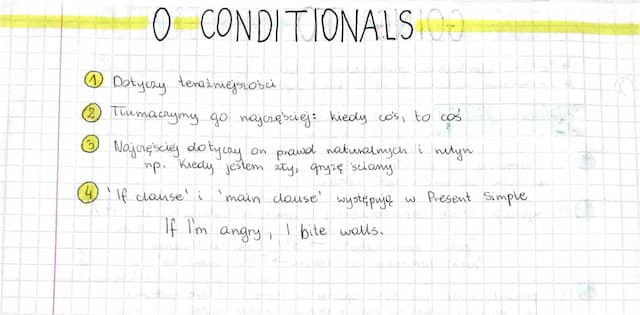 0 CONDITIONALS
1 Dotyczy teraźniejszości
2 Tłumaczymy go najczęściej: kiedy coś, to coś
3 Najczęściej dotyczy on prawd naturalnych i rutyn
np. Kiedy jestem zły, gryzę ściany
4 'If clause' i 'main clause' występują w Present Simple
If I'm angry, I bite walls.